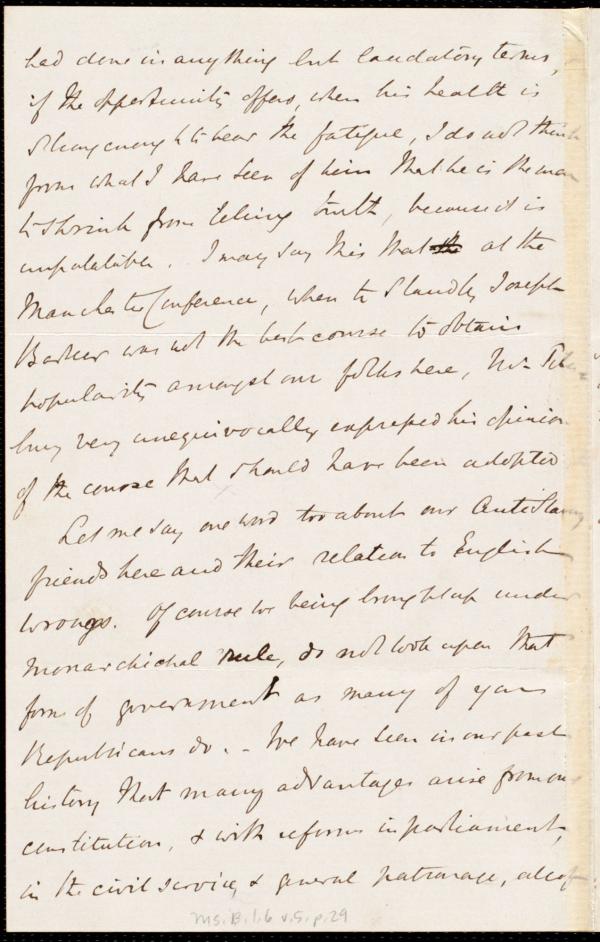 had done in anything but laudatory terms,
if the opportunity offers, when his health is
strong enough to bear the fatigue, I do not think
from what I have seen of him that he is the man
to shrink from telling truth, because it is
unpalatable. I may say this that at the
Manchester Conference, when to
Barker was not the best course to obtain
popularity amongst our folks here, Mr
bury very unequivocally expressed his opinion
of the course that should have been adopted
Let me say one word too about our AntiSlavery
friends here and their relation to English
wrongs. Of course we being brought up under
monarchichal rule, do not look upon that
form of government as many of your
Republicans do. - We have seen in our past
history that many advantages arise from our
constitution, & with reforms in parliament,
in the civil service, & general patronage,
Ms. B. 1. 6 v. 5. p. 29